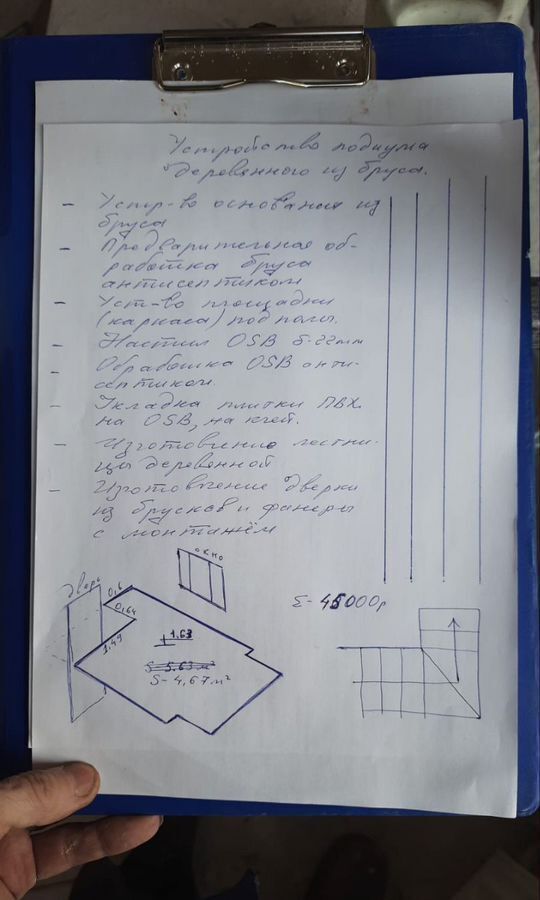 Устройство подиума
деревянного из бруса.
– Устр-во основания из
бруса
– Предварительная об-
работка бруса
антисептиком
– Уст-во площадки
(каркаса) под полы.
– Настил OSB δ-22мм
– Обработка OSB анти-
септиком.
– Укладка плитки ПВХ.
на OSB, на клей.
– Изготовление лестни-
цы деревянной
– Изготовление дверки
из брусков и фанеры
с монтажём
окно
дверь
0,6
0,64
1.49
1.63
S-5.63 м²
S-4,67 м²
Σ-45000р